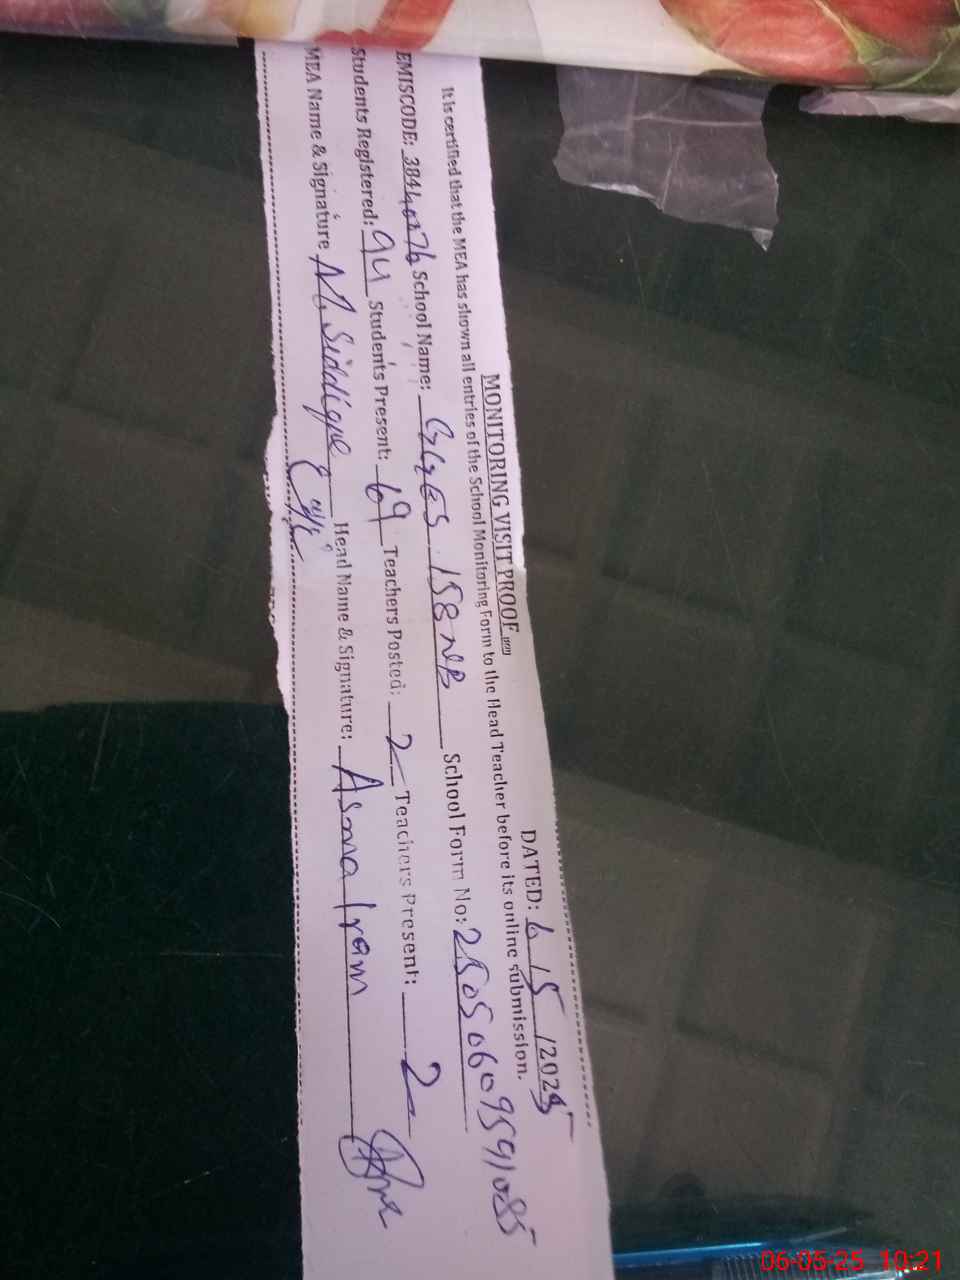 MONITORING VISIT PROOF DATED: 6 / 5 / 2025
It is certified that the MEA has shown all entries of the School Monitoring Form to the Head Teacher before its online submission.
EMISCODE: 38440276 School Name: GGES 158 NB School Form No: 25050609591085
Students Registered: 94 Students Present: 69 Teachers Posted: 2 Teachers Present: 2
MEA Name & Signature Siddique Head Name & Signature: Asma Iram
06-05-25 10:21